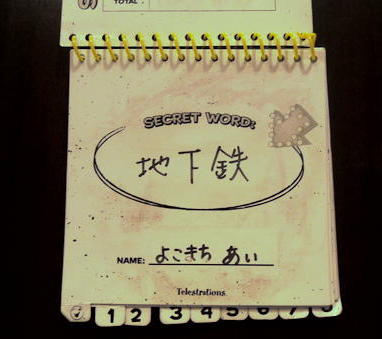 TOTAL
SECRET WORD:
地下鉄
NAME: よこまち あい
Telestrations
1 2 3 4 5 6 7 8